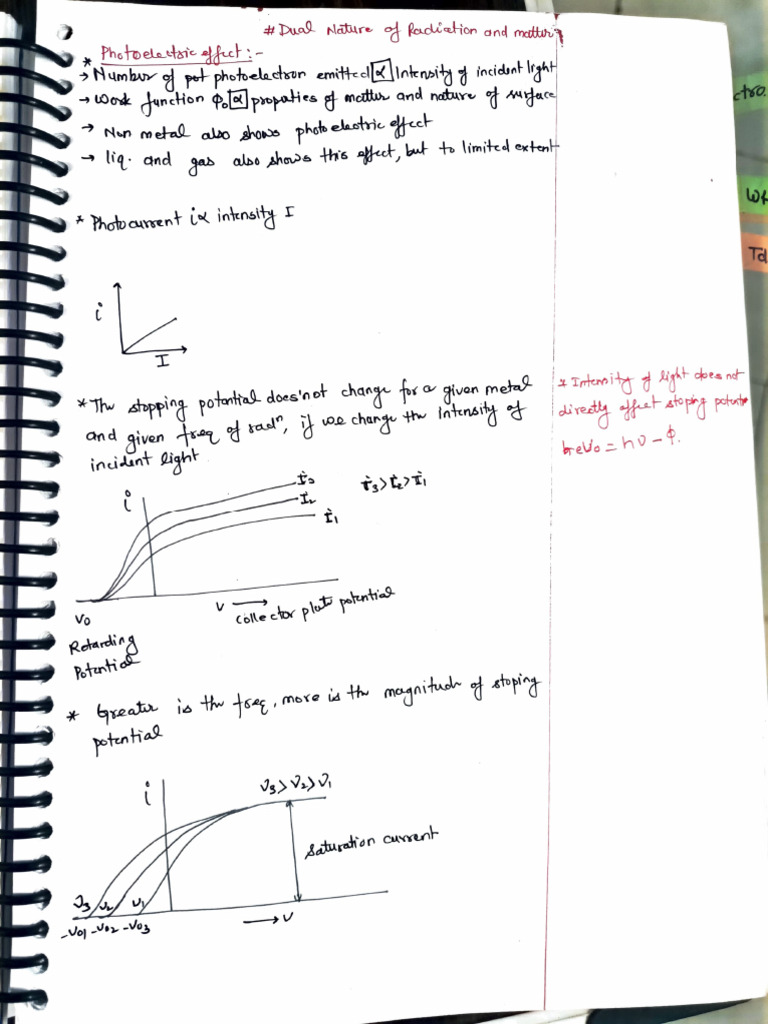 # Dual Nature of Radiation and matter
* Photoelectric effect :-
→ Number of pot photoelectron emitted ∝ Intensity of incident light
→ Work function ϕ₀ ∝ propaties of matter and nature of surface
→ Non metal also shows photoelectric effect
→ liq. and gas also shows this effect, but to limited extent
* Photocurrent i ∝ intensity I
i
I
* The stopping potential does'not change for a given metal
and given freq of radⁿ, if we change the Intensity of
incident light
* Intensity of light does not
directly effect stoping
eV₀ = hν - ϕ.
i
I₃
I₂
I₁
I₃>I₂>I₁
V₀
V → collector plate potential
Retarding
Potential
* Greater is the freq, more is the magnitude of stoping
potential
i
ν₃>ν₂>ν₁
saturation current
ν₃ ν₂ ν₁
-V₀₁ -V₀₂ -V₀₃
→ V
ctro.
Td